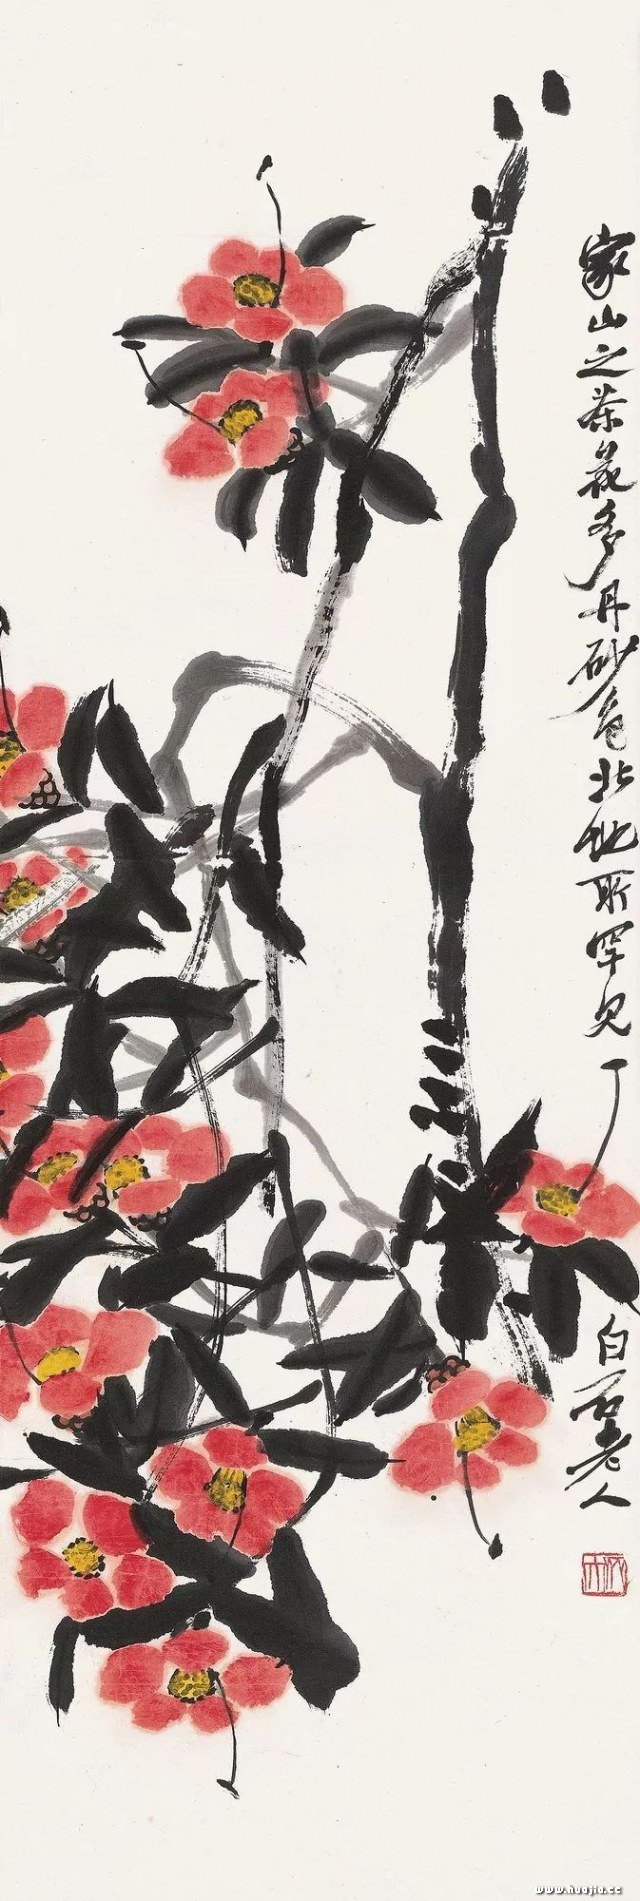 家山之茶花多丹砂色北地所罕见
白石老人
www.huajia.cc